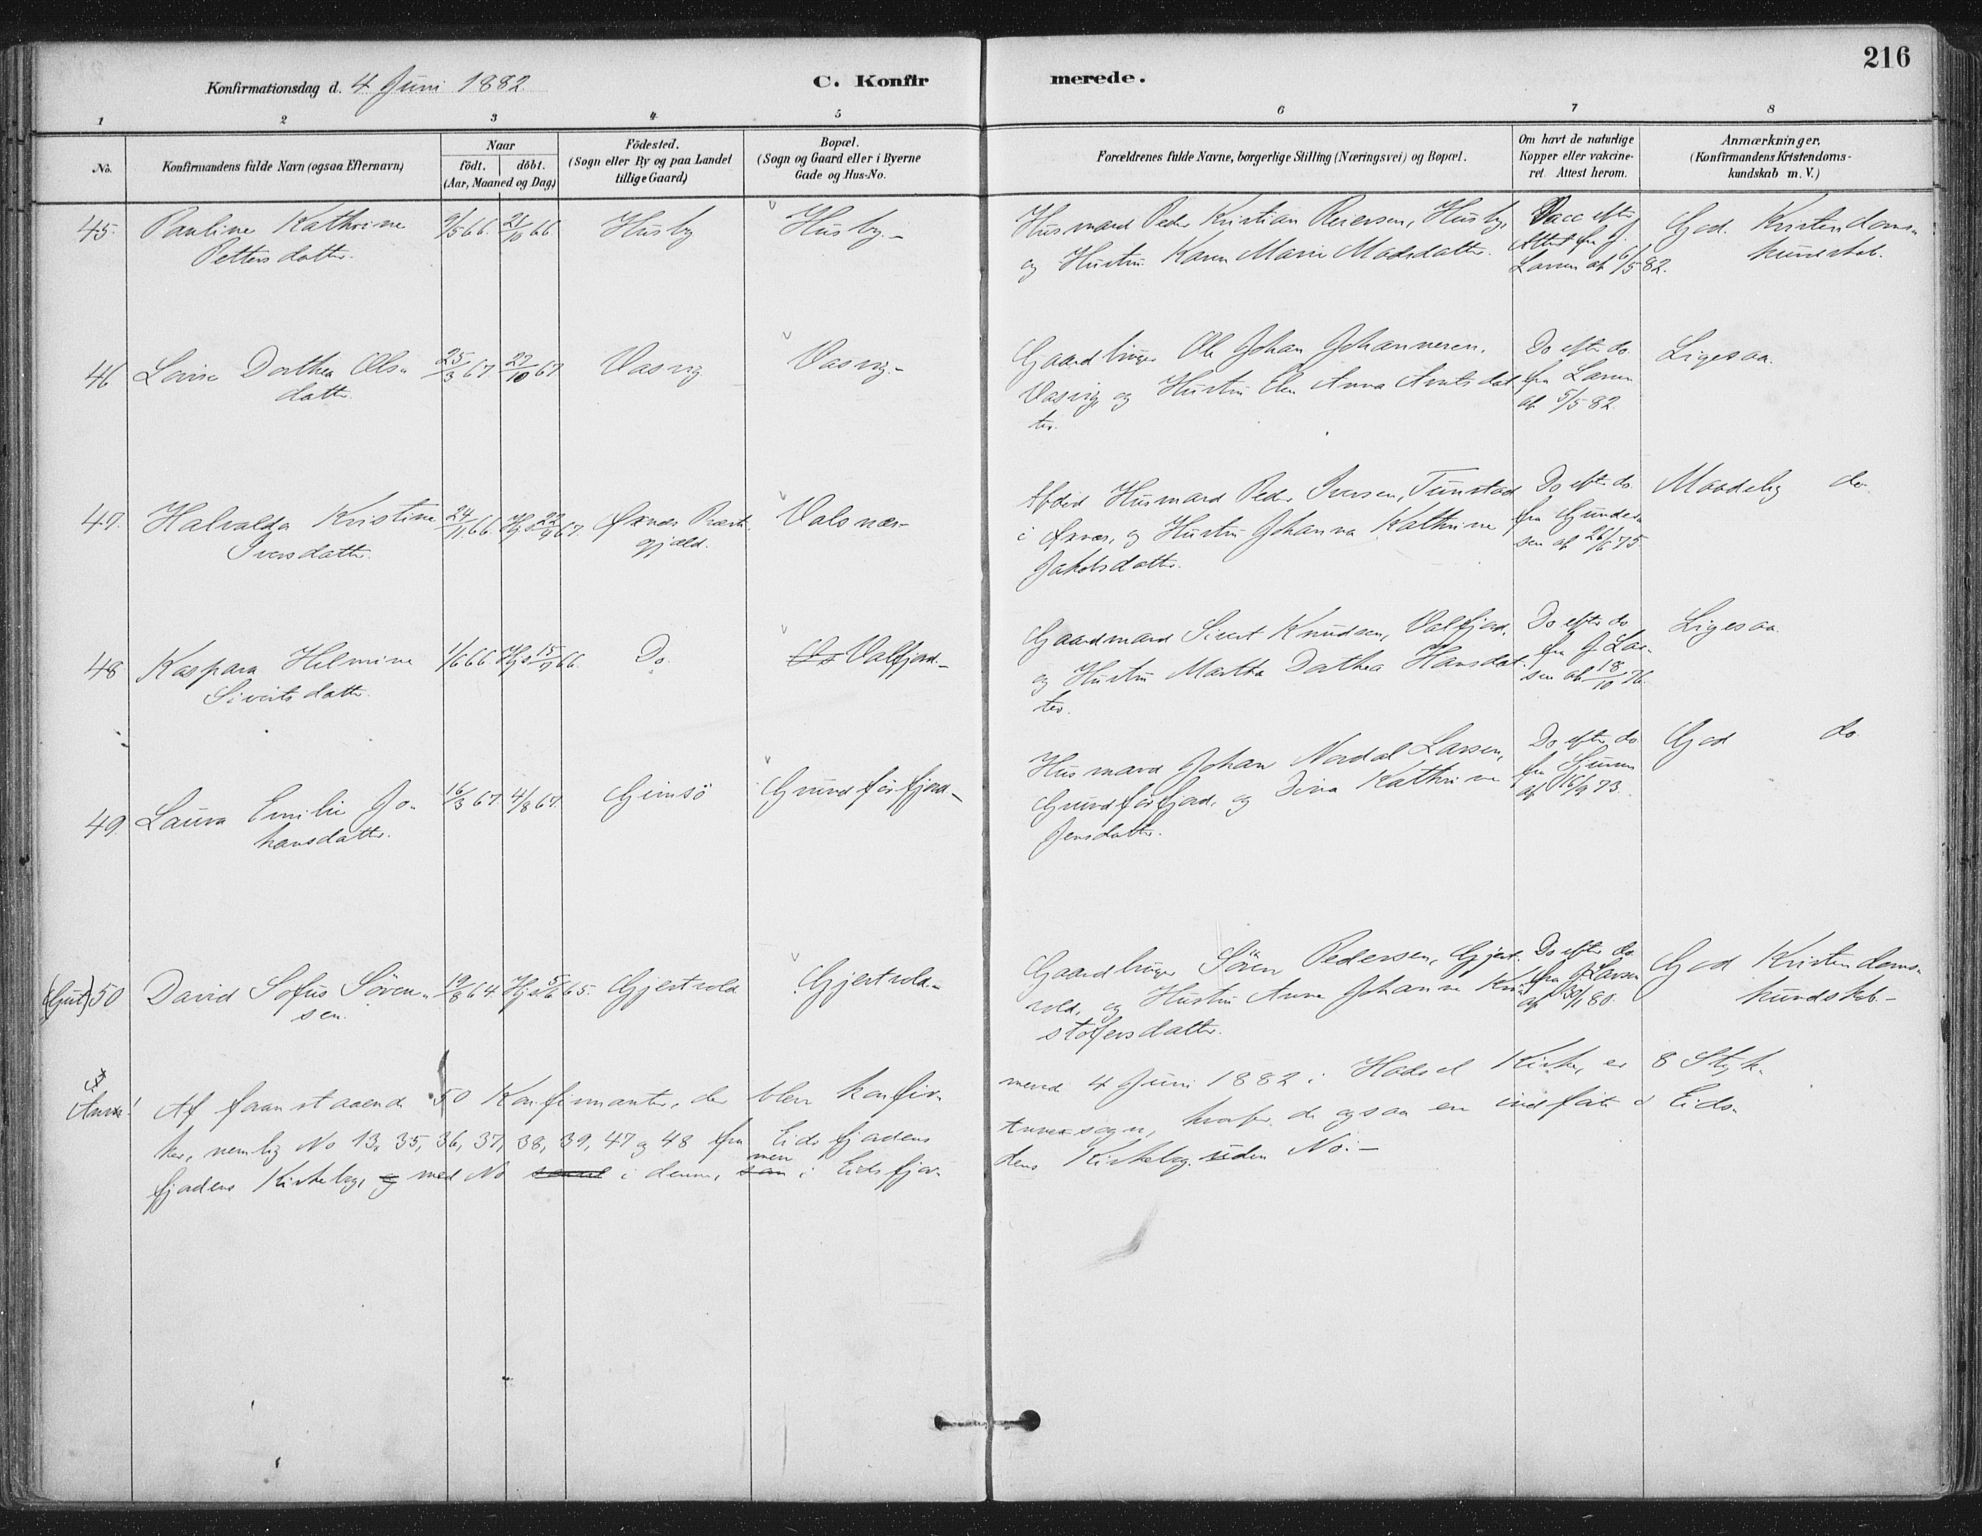 216
Konfirmationsdag d. 4 Juni 1882.
C. Konfirmerede.
1 2 3 4 5 6 7 8
No.
Konfirmandens fulde Navn (ogsaa Efternavn)
Naar
födt. döbt.
(Aar, Maaned og Dag)
Födested.
(Sogn eller By og paa Landet
tillige Gaard)
Bopæl.
(Sogn og Gaard eller i Byerne
Gade og Hus-No.
Forældrenes fulde Navne, borgerlige Stilling (Næringsvei) og Bopæl.
Om havt de naturlige
Kopper eller vakcine-
ret. Attest herom.
Anmærkninger,
(Konfirmandens Kristendoms-
kundskab m. V.)
45. Pauline Kathrine 9/5 66 66 Husby Husby.-
Petters datter.
Husmand Peder Kristian Reiersen, Husby,
og Hustru Karen Marie Madsdatter.
Vacc efter
Attest fra J.
Larsen af 6/5 82.
God Kristendoms-
kundskab.
46 Lovise Dorthea Ols- 25/3 67 27/10 67 Vasvig Vasvig.-
datter.
Gaardbruger Ole Johan Johannesen,
Vasvig, og Hustru Elen Anna Arntsdat-
ter.
Do efter do
fra Larsen
af 5/5 82.
Ligesaa.
47. Halvalda Kristine 24/11 66. Hj. 22/9 67. Øxnæs Præste- Valsnæs-
Iversdatter. gjæld.
Afdød Husmand Peder Iversen, Tunstad
i Øxnæs, og Hustru Johanna Kathrine
Jakobsdatter.
Do efter do
fra Gunder-
sen af 26/6 75.
Maadelig do.
48 Kaspara Helmine 1/6 66 Hj. 15/7 66. Do. Valfjord-
Siverts datter.
Gaardmand Sivert Knudsen, Valfjord,
og Hustru Martha Dorthea Hansdat-
ter.
Do efter do
fra J. Lar-
sen af 18/10 76.
Ligesaa
49 Laura Emilie Jo- 16/3 67. 4/8 67. Gimsö Grundförfjord-
hansdatter.
Husmand Johan Nordal Larsen,
Grundförfjord, og Dina Kathrine
Jensdatter.
Do efter do
fra
af 15/9 73.
God do
(Gut) 50 David Sofus Sören- 19/8 64 Hj. 5/6 65. Gjertvold Gjertvold.-
sen.
Gaardbruger Sören Pedersen, Gjert-
vold, og Hustru Anne Johanne Kri-
stofersdatter.
Do efter do
fra J. Larsen
af 30/1 80.
God Kristendoms-
kundskab.-
Anm! Af foranstaaende 50 Konfirmanter, der blev konfir-
merede 4 Juni 1882 i Hadsel Kirke, er 8 Styk-
ker, nemlig No 13, 35, 36, 37, 38, 39, 47 og 48 fra Eidsfjordens
Annexsogn, hvorfor de ogsaa ere indförte i Eids-
fjordens Kirkebog, og med No i denne, som men i Eidsfjor-
dens Kirkebog uden No.-